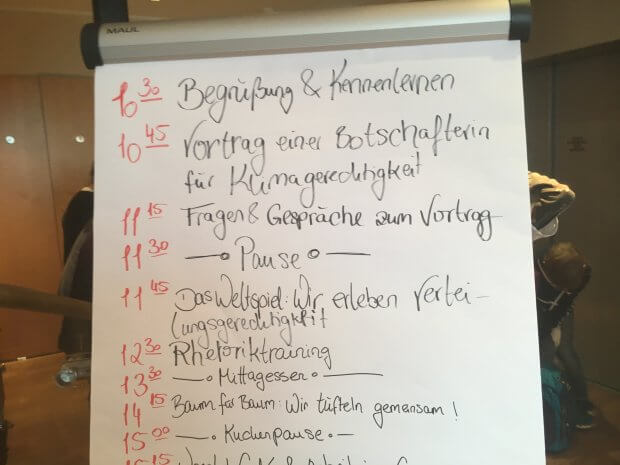 MAUL
10 30 Begrüßung & Kennenlernen
10 45 Vortrag einer Botschafterin
für Klimagerechtigkeit
11 15 Fragen & Gespräche zum Vortrag
11 30 Pause
11 45 Das Weltspiel: Wir erleben Vertei-
lungsgerechtigkeit
12 30 Rhetoriktraining
13 30 Mittagessen
14 15 Baum für Baum: Wir tüfteln gemeinsam!
15 00 Kuchenpause
15 15